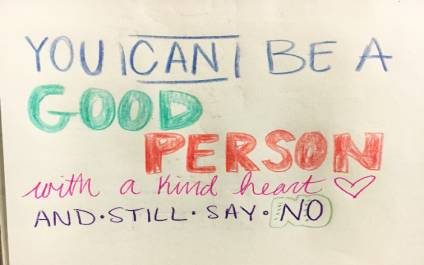 YOU CAN BE A
GOOD
PERSON
with a kind heart
AND·STILL·SAY·NO